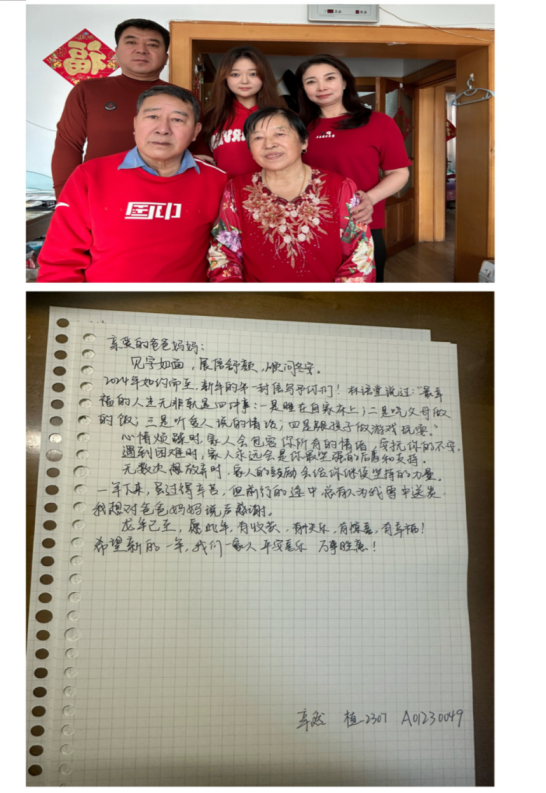 福
国中
亲爱的爸爸妈妈：
见字如面，展信舒颜，顺问冬安。
2024年如约而至，新年的第一封信写予你们！林语堂说过："最幸
福的人生无非就是四件事：一是睡在自家床上；二是吃父母做
的饭；三是听爱人说的情话；四是跟孩子做游戏玩耍。"
心情烦躁时，家人会包容你所有的情绪，安抚你的不安。
遇到困难时，家人永远会是你最坚强的后盾和支持。
无数次想放弃时，家人的鼓励会给你继续坚持的力量。
一年下来，虽过得辛苦，但前行的途中总有人为我雪中送炭
我想对爸爸妈妈说声感谢。
龙年已至，愿此年，有收获，有快乐，有惊喜，有幸福！
希望新的一年，我们一家人 平安喜乐 万事胜意！
植2307 A01230049